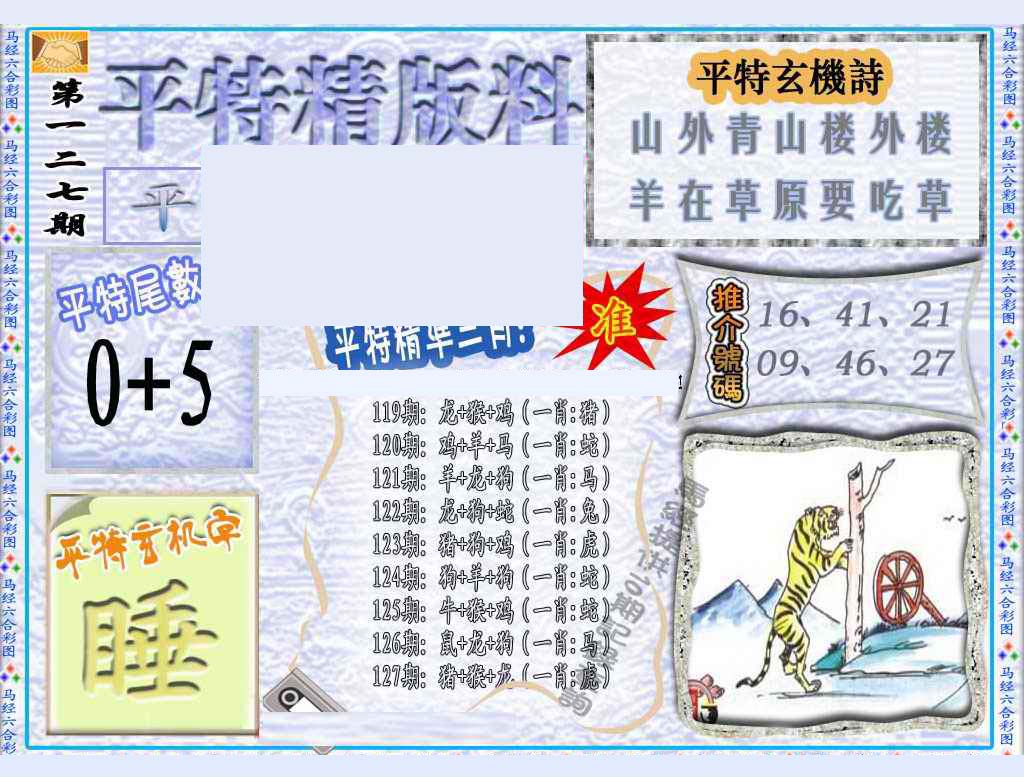 第一二七期
平特精版料
平
平特玄機詩
山外青山楼外楼
羊在草原要吃草
平特尾數
0+5
平特精準一肖
准
推介號碼
16、41、21
09、46、27
119期: 龙+猴+鸡(一肖:猪)
120期: 鸡+羊+马(一肖:蛇)
121期: 羊+龙+狗(一肖:马)
122期: 龙+狗+蛇(一肖:兔)
123期: 猪+狗+鸡(一肖:虎)
124期: 狗+羊+狗(一肖:蛇)
125期: 牛+猴+鸡(一肖:蛇)
126期: 鼠+龙+狗(一肖:马)
127期: 猪+猴+龙(一肖:虎)
平特玄机字
睡
马经六合彩图 马经六合彩图 马经六合彩图 马经六合彩图 马经六合彩图 马经六合彩图 马经六合彩
马经六合彩图 马经六合彩图 马经六合彩图 马经六合彩图 马经六合彩图 马经六合彩图 马经六合彩图